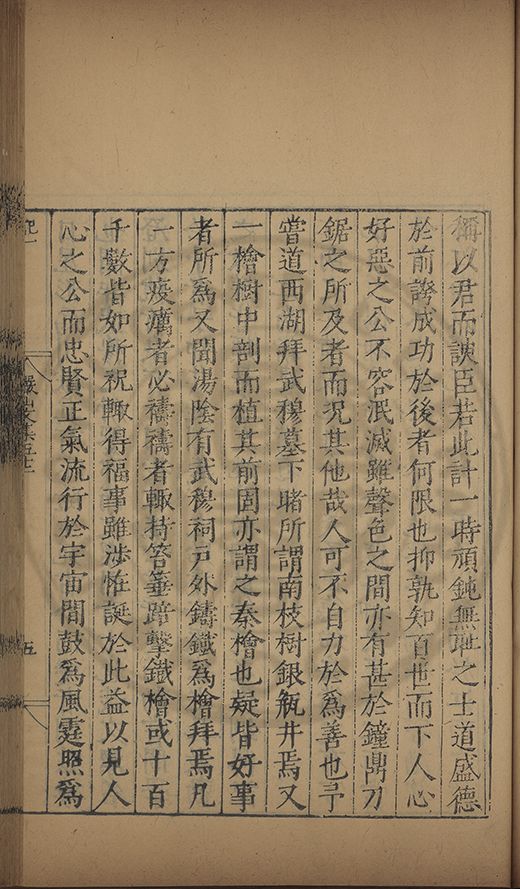 稱以君而諛臣若此計一時頑鈍無恥之士道盛德
於前誇成功於後者何限也抑孰知百世而下人心
好惡之公不容泯滅雖聲色之間亦有甚於鐘鼎刀
鋸之所及者而況其他哉人可不自力於為善也予
嘗道西湖拜武穆墓下睹所謂南枝樹銀瓶井焉又
一檜樹中剖而植其前固亦謂之秦檜也疑皆好事
者所為又聞湯陰有武穆祠戶外鑄鐵為檜拜焉凡
一方疫癘者必禱禱者輙持笞箠踣擊鐵檜或十百
千數皆如所祝輙得福事雖涉恠誕於此益以見人
心之公而忠賢正氣流行於宇宙間鼓為風霆照為
五